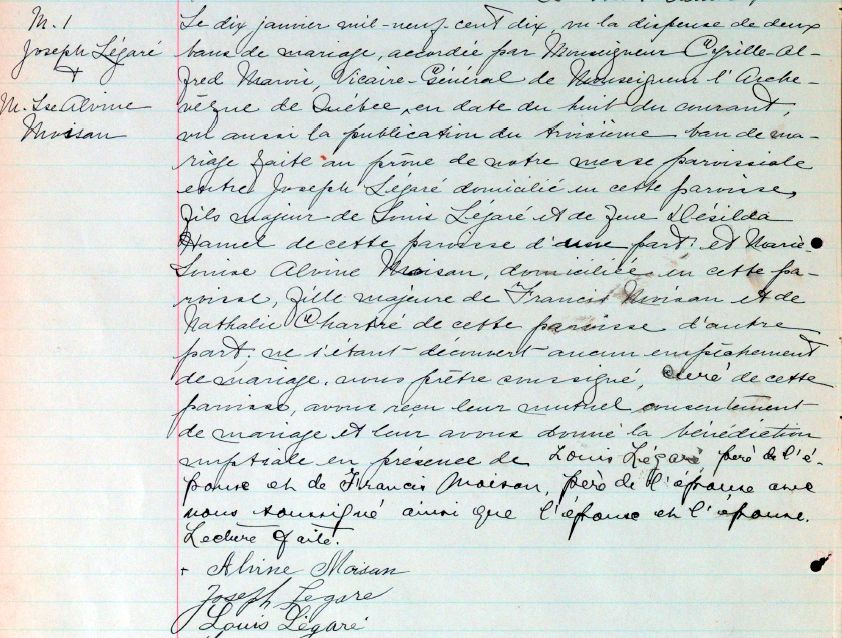 M. 1
Joseph Légaré
+
M. Lse Alvine
Moisan
Le dix janvier mil-neuf-cent dix, vu la dispense de deux
bans de mariage, accordée par Monseigneur Cyrille-Al-
fred Marois, Vicaire-Général de Monseigneur l'Arche-
vêque de Québec, en date du huit du courant,
vu aussi la publication du troisième ban de ma-
riage faite au prône de notre messe paroissiale
entre Joseph Légaré domicilié en cette paroisse,
fils majeur de Louis Légaré et de feue Désilda
Hamel de cette paroisse d'une part; et Marie-
Louise Alvine Moisan, domiciliée en cette pa-
roisse, fille majeure de Francis Moisan et de
Nathalie Chartré de cette paroisse d'autre
part; ne s'étant découvert aucun empêchement
de mariage, nous prêtre soussigné, curé de cette
paroisse, avons reçu leur mutuel consentement
de mariage et leur avons donné la bénédiction
nuptiale en présence de Louis Légaré père de l'é-
poux et de Francis Moisan, père de l'épouse avec
nous soussigné ainsi que l'époux et l'épouse.
Lecture faite.
+ Alvine Moisan
Joseph Legare
Louis Légaré